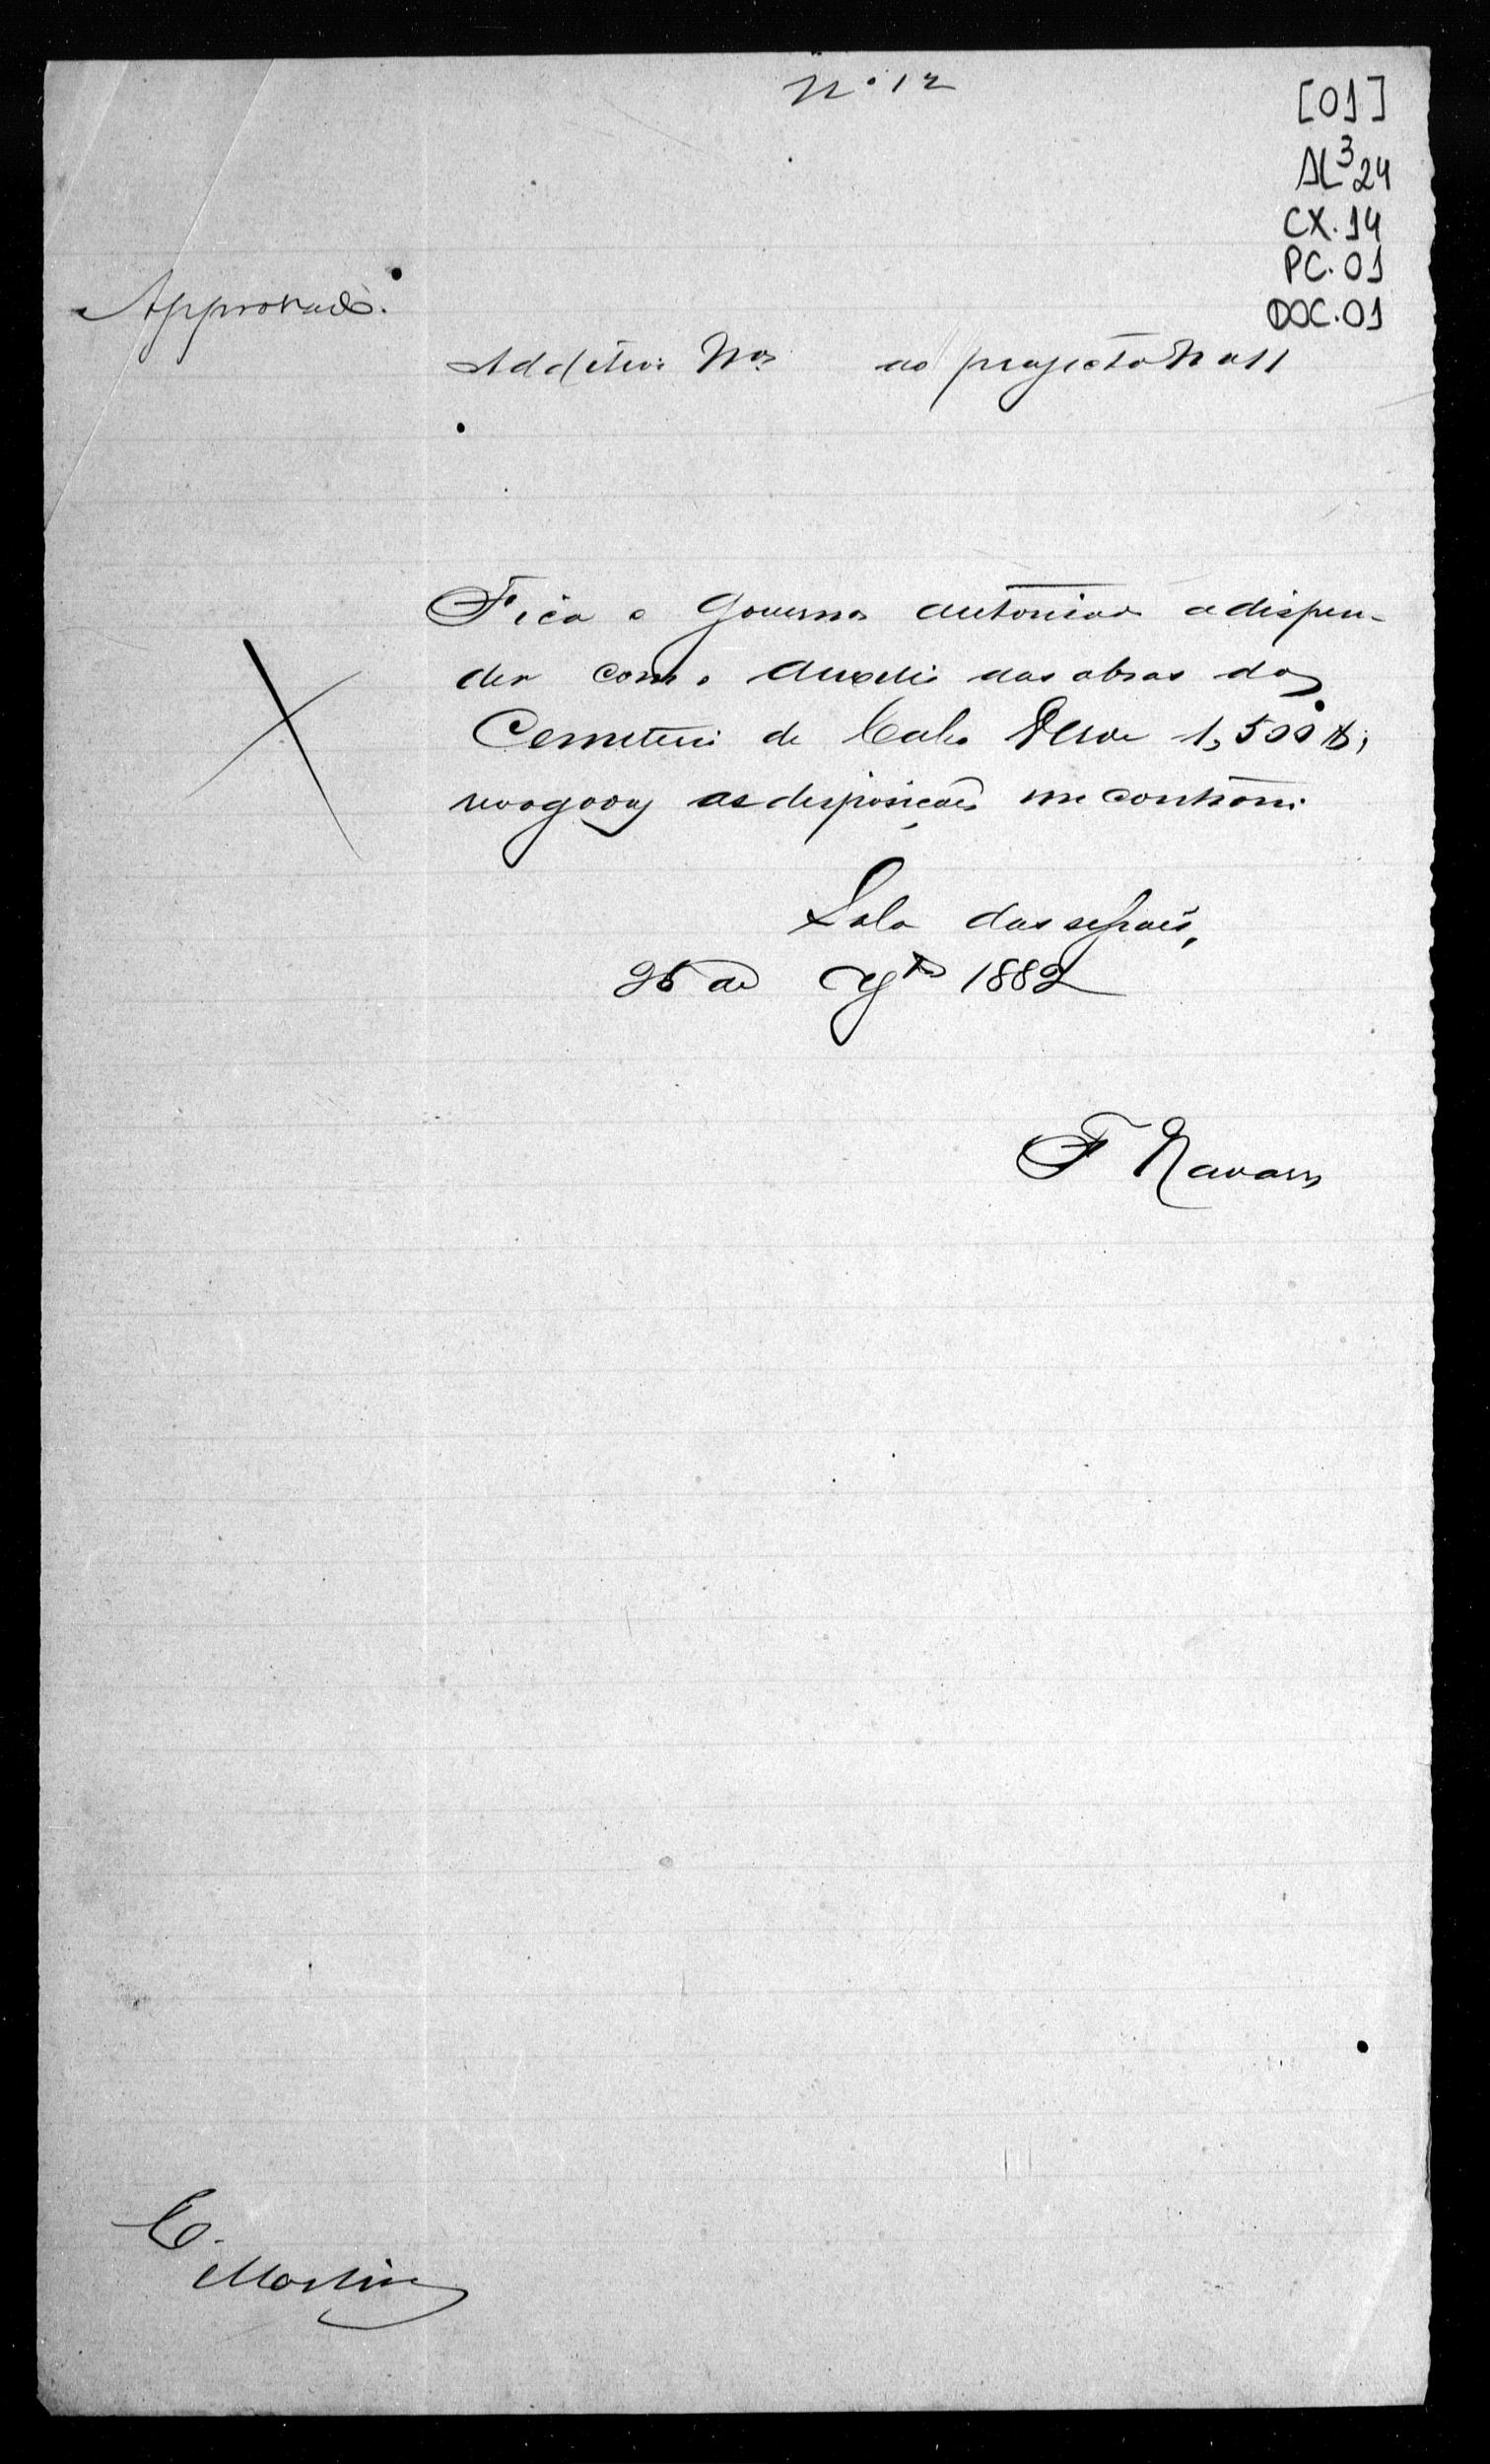 Nº 12
[01]
AL³24
CX.14
PC.01
DOC.01
Approvado.
Additivo Nº ao projecto Nº 11
Fica o Governo autorisado a dispen-
der com o auxilio das obras do
Cemeterio de Cabo Verde 1,500$;
revogadas as disposições em contrario.
Sala das sessões,
25 de Agto 1882
F Navarro
C. Martins